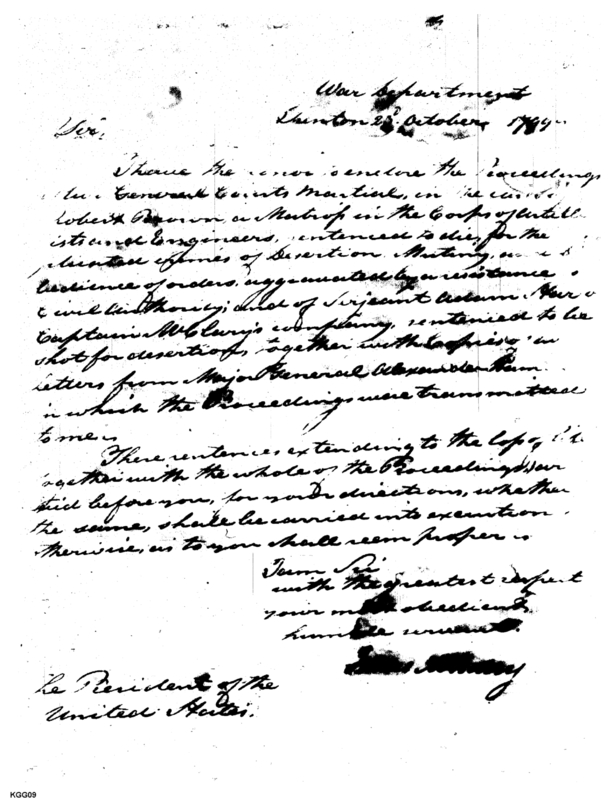 War Department
Trenton 25th October 1799
Sir,
I have the honor to enclose the Proceedings
General Courts Martial, in the
Robert Brown, a Matross in the Corps of Artill
ists and Engineers, sentenced to die, for the
crimes of Desertion Mutiny, and
bedience of orders, aggravated by a resistance
civil authority; and of Serjeant Adam
Captain McClary's company, sentenced to be
shot for desertion; together with Copies
letters from Major General Alexander Ham
in which the Proceedings were transmitted
to me.
These sentences extending to the loss of
together with the whole of the Proceedings are
laid before you, for your directions, whether
the same, shall be carried into execution
therwise, as to you shall seem proper
I am Sir
with the greatest respect
your most obedient
humble servant.
James McHenry
he President of the
United States.
KGG09